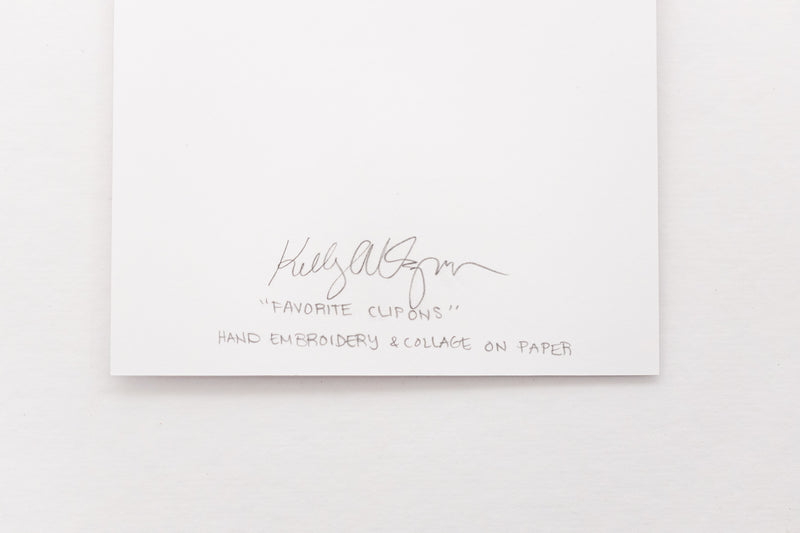 Kelly
"FAVORITE CLIPONS"
HAND EMBROIDERY & COLLAGE ON PAPER